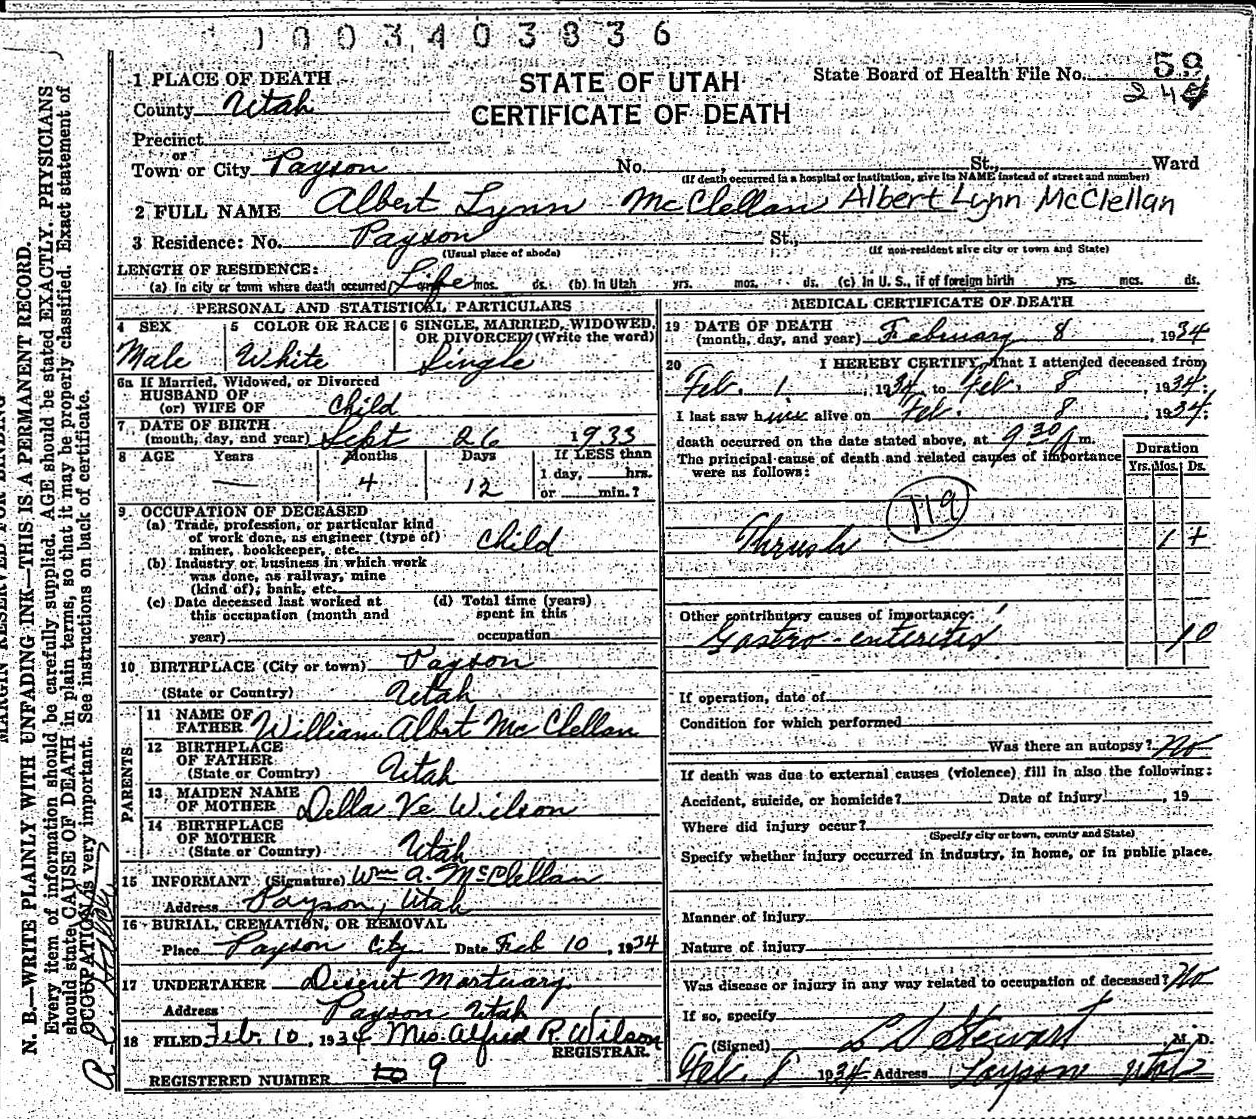 1003403836
1 PLACE OF DEATH
STATE OF UTAH
CERTIFICATE OF DEATH
State Board of Health File No. 59
24
County Utah
Precinct
or
Town or City Payson No. , St., Ward
(If death occurred in a hospital or institution, give its NAME instead of street and number)
2 FULL NAME Albert Lynn McClellan Albert Lynn McClellan
3 Residence: No. Payson St.,
(Usual place of abode) (If non-resident give city or town and State)
LENGTH OF RESIDENCE:
(a) In city or town where death occurred Life mos. ds. (b) In Utah yrs. mos. ds. (c) In U. S., if of foreign birth yrs. mos. ds.
PERSONAL AND STATISTICAL PARTICULARS
4 SEX
Male
5 COLOR OR RACE
White
6 SINGLE, MARRIED, WIDOWED,
OR DIVORCED (Write the word)
Single
6a If Married, Widowed, or Divorced
HUSBAND OF
(or) WIFE OF Child
7 DATE OF BIRTH
(month, day, and year) Sept 26 1933
8 AGE Years Months Days If LESS than
— 4 12 1 day, hrs.
or min.?
9 OCCUPATION OF DECEASED
(a) Trade, profession, or particular kind
of work done, as engineer (type of)
miner, bookkeeper, etc. Child
(b) Industry or business in which work
was done, as railway, mine
(kind of); bank, etc.
(c) Date deceased last worked at
this occupation (month and
year)
(d) Total time (years)
spent in this
occupation
10 BIRTHPLACE (City or town) Payson
(State or Country) Utah
PARENTS
11 NAME OF
FATHER William Albert McClellan
12 BIRTHPLACE
OF FATHER
(State or Country) Utah
13 MAIDEN NAME
OF MOTHER Della Ve Wilson
14 BIRTHPLACE
OF MOTHER
(State or Country) Utah
15 INFORMANT (Signature) Wm A. McClellan
Address Payson, Utah
16 BURIAL, CREMATION, OR REMOVAL
Place Payson City Date Feb 10, 1934
17 UNDERTAKER Deseret Mortuary
Address Payson Utah
18 FILED Feb. 10, 1934 Mrs. Alfred R. Wilson
REGISTRAR.
REGISTERED NUMBER 9
MEDICAL CERTIFICATE OF DEATH
19 DATE OF DEATH
(month, day, and year) February 8, 1934
20 I HEREBY CERTIFY, That I attended deceased from
Feb. 1, 1934 to Feb. 8, 1934.
I last saw him alive on Feb. 8 1934.
death occurred on the date stated above, at 9 30 A m.
The principal cause of death and related causes of importance
were as follows:
Duration
Yrs. Mos. Ds.
119
Thrush 1 +
Other contributory causes of importance:
Gastro-enteritis 10
If operation, date of
Condition for which performed
Was there an autopsy? No
If death was due to external causes (violence) fill in also the following:
Accident, suicide, or homicide? Date of injury , 19
Where did injury occur?
(Specify city or town, county and State)
Specify whether injury occurred in industry, in home, or in public place.
Manner of injury
Nature of injury
Was disease or injury in any way related to occupation of deceased? No
If so, specify
(Signed) L D Stewart M. D.
Feb. 8 1934 Address Payson Utah
MARGIN RESERVED FOR BINDING
N. B.—WRITE PLAINLY WITH UNFADING INK—THIS IS A PERMANENT RECORD.
Every item of information should be carefully supplied. AGE should be stated EXACTLY. PHYSICIANS
should state CAUSE OF DEATH in plain terms, so that it may be properly classified. Exact statement of
OCCUPATION is very important. See instructions on back of certificate.